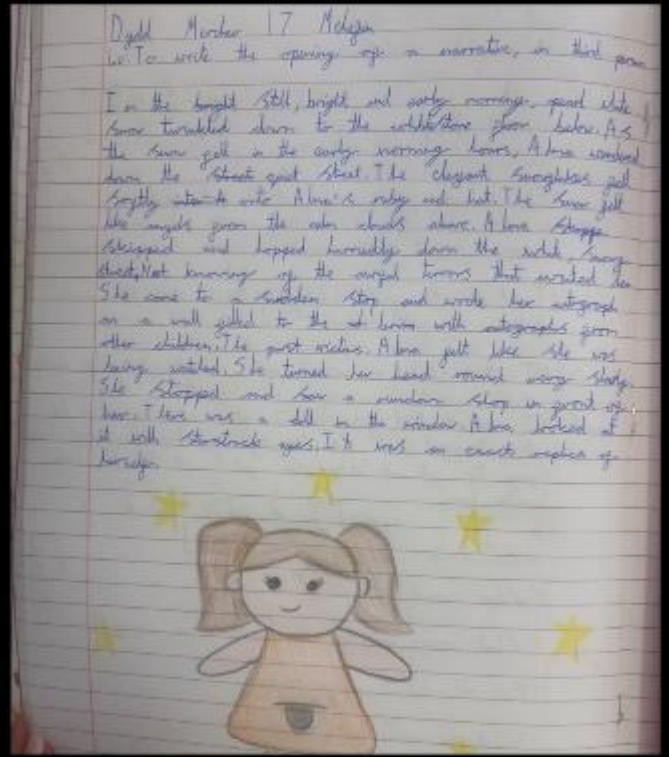 Dydd Mawrth 17 Medi
Lo: To write the opening of a narrative, in third person
In the bright still, bright and early morning, pearl white
snow tumbled down to the cobblestone floor below. As
the snow fell in the early morning hours, Alma wandered
down the street quiet street. The elegant snowflakes fell
softly into Alma's ruby red hat. The snow fell
like angels from the calm clouds above. Alma
skipped and hopped down the snowy
street, Not knowing of the horrors that awaited her
She came to a sudden stop and wrote her autograph
on a wall filled to the brim with autographs from
other children. The past victims. Alma felt like she was
being watched. She turned her head round very slowly.
She stopped and saw a rundown shop in front of
her. There was a doll in the window Alma, looked at
it with starstruck eyes. It was an exact replica of
herself.